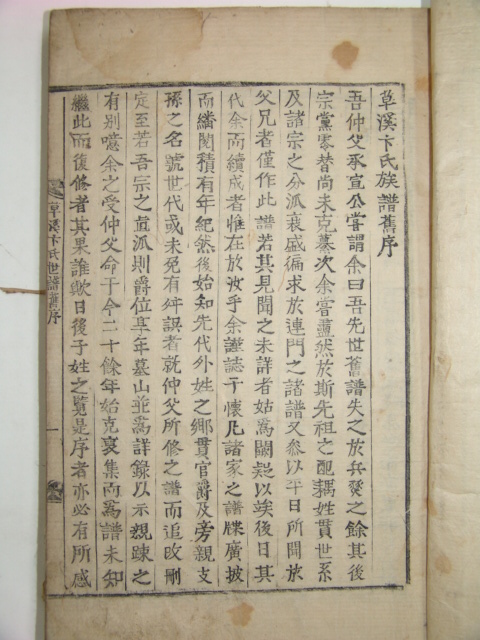 草溪卞氏族譜舊序
吾仲父承宣公嘗謂余曰吾先世舊譜失之於兵燹之餘其後
宗黨零替尚未克纂次余嘗盡然於斯先祖之配耦姓貫世系
及諸宗之分派衰盛徧求於連門之諸譜又叅以平日所聞於
父兄者僅作此譜若其見聞之未詳者姑爲闕疑以俟後日其
代余而續成者惟在於汝乎余謹誌于懷凡諸家之譜牒廣披
而繙閱積有年紀然後始知先代外姓之鄕貫官爵及旁親支
孫之名號世代或未免有舛誤者就仲父所修之譜而追改刪
定至若吾宗之直派則爵位享年墓山並爲詳錄以示親踈之
有別噫余之受仲父命于今二十餘年始克裒集而爲譜未知
繼此而復修者其果誰歟日後子姓之覽是序者亦必有所感
草溪卞氏世譜舊序
一